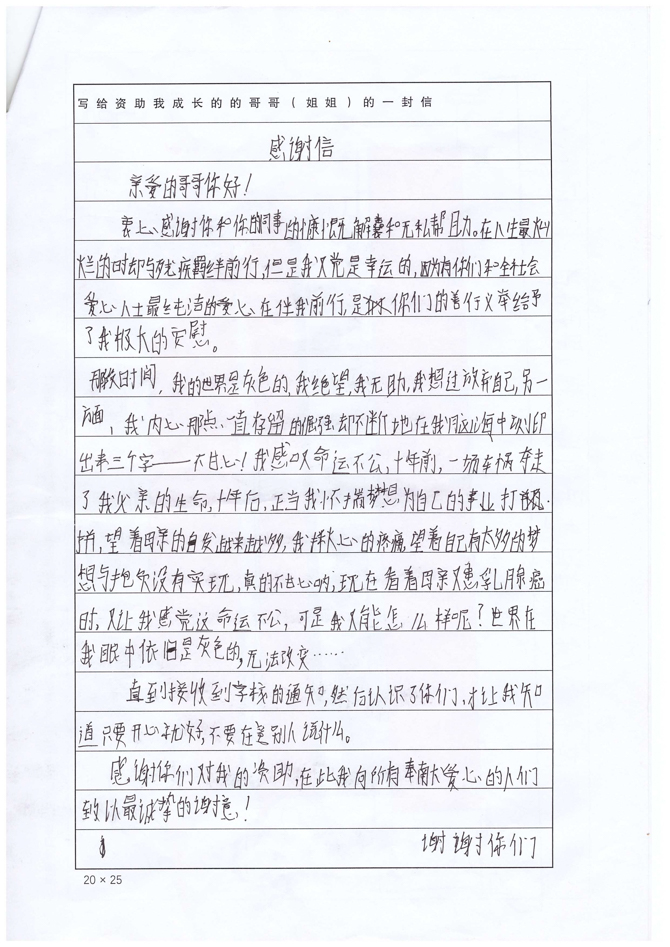 写给资助我成长的的哥哥（姐姐）的一封信
感谢信
亲爱的哥哥你好！
衷心感谢你和你的同事的慷慨解囊和无私帮助。在人生最灿
烂的时却与残疾羁绊前行,但是我又觉是幸运的,因为有你们和全社会
爱心人士最纯洁的爱心在伴我前行,是你们的善行义举给予
了我极大的安慰。
那段时间，我的世界是灰色的,我绝望,我无助,我想过放弃自己,另一
方面，我内心那点一直存留的倔强却不断地在我脑海中
出来三个字——不甘心！我感叹命运不公,十年前,一场车祸夺走
了我父亲的生命,十年后,正当我怀揣梦想为自己的事业打
拼,望着母亲的白发越来越多,我心的疼痛,望着自己有太多的梦
想与抱负没有实现,真的不甘心呐;现在看着母亲又患乳腺癌
时,又让我感觉这命运不公,可是我又能怎么样呢？世界在
我眼中依旧是灰色的,无法改变……
直到接收到学校的通知,然后认识了你们,才让我知
道只要开心就好,不要在意别人说什么。
感谢你们对我的资助,在此我向所有奉献大爱心的人们
致以最诚挚的谢意！
谢谢你们
20×25